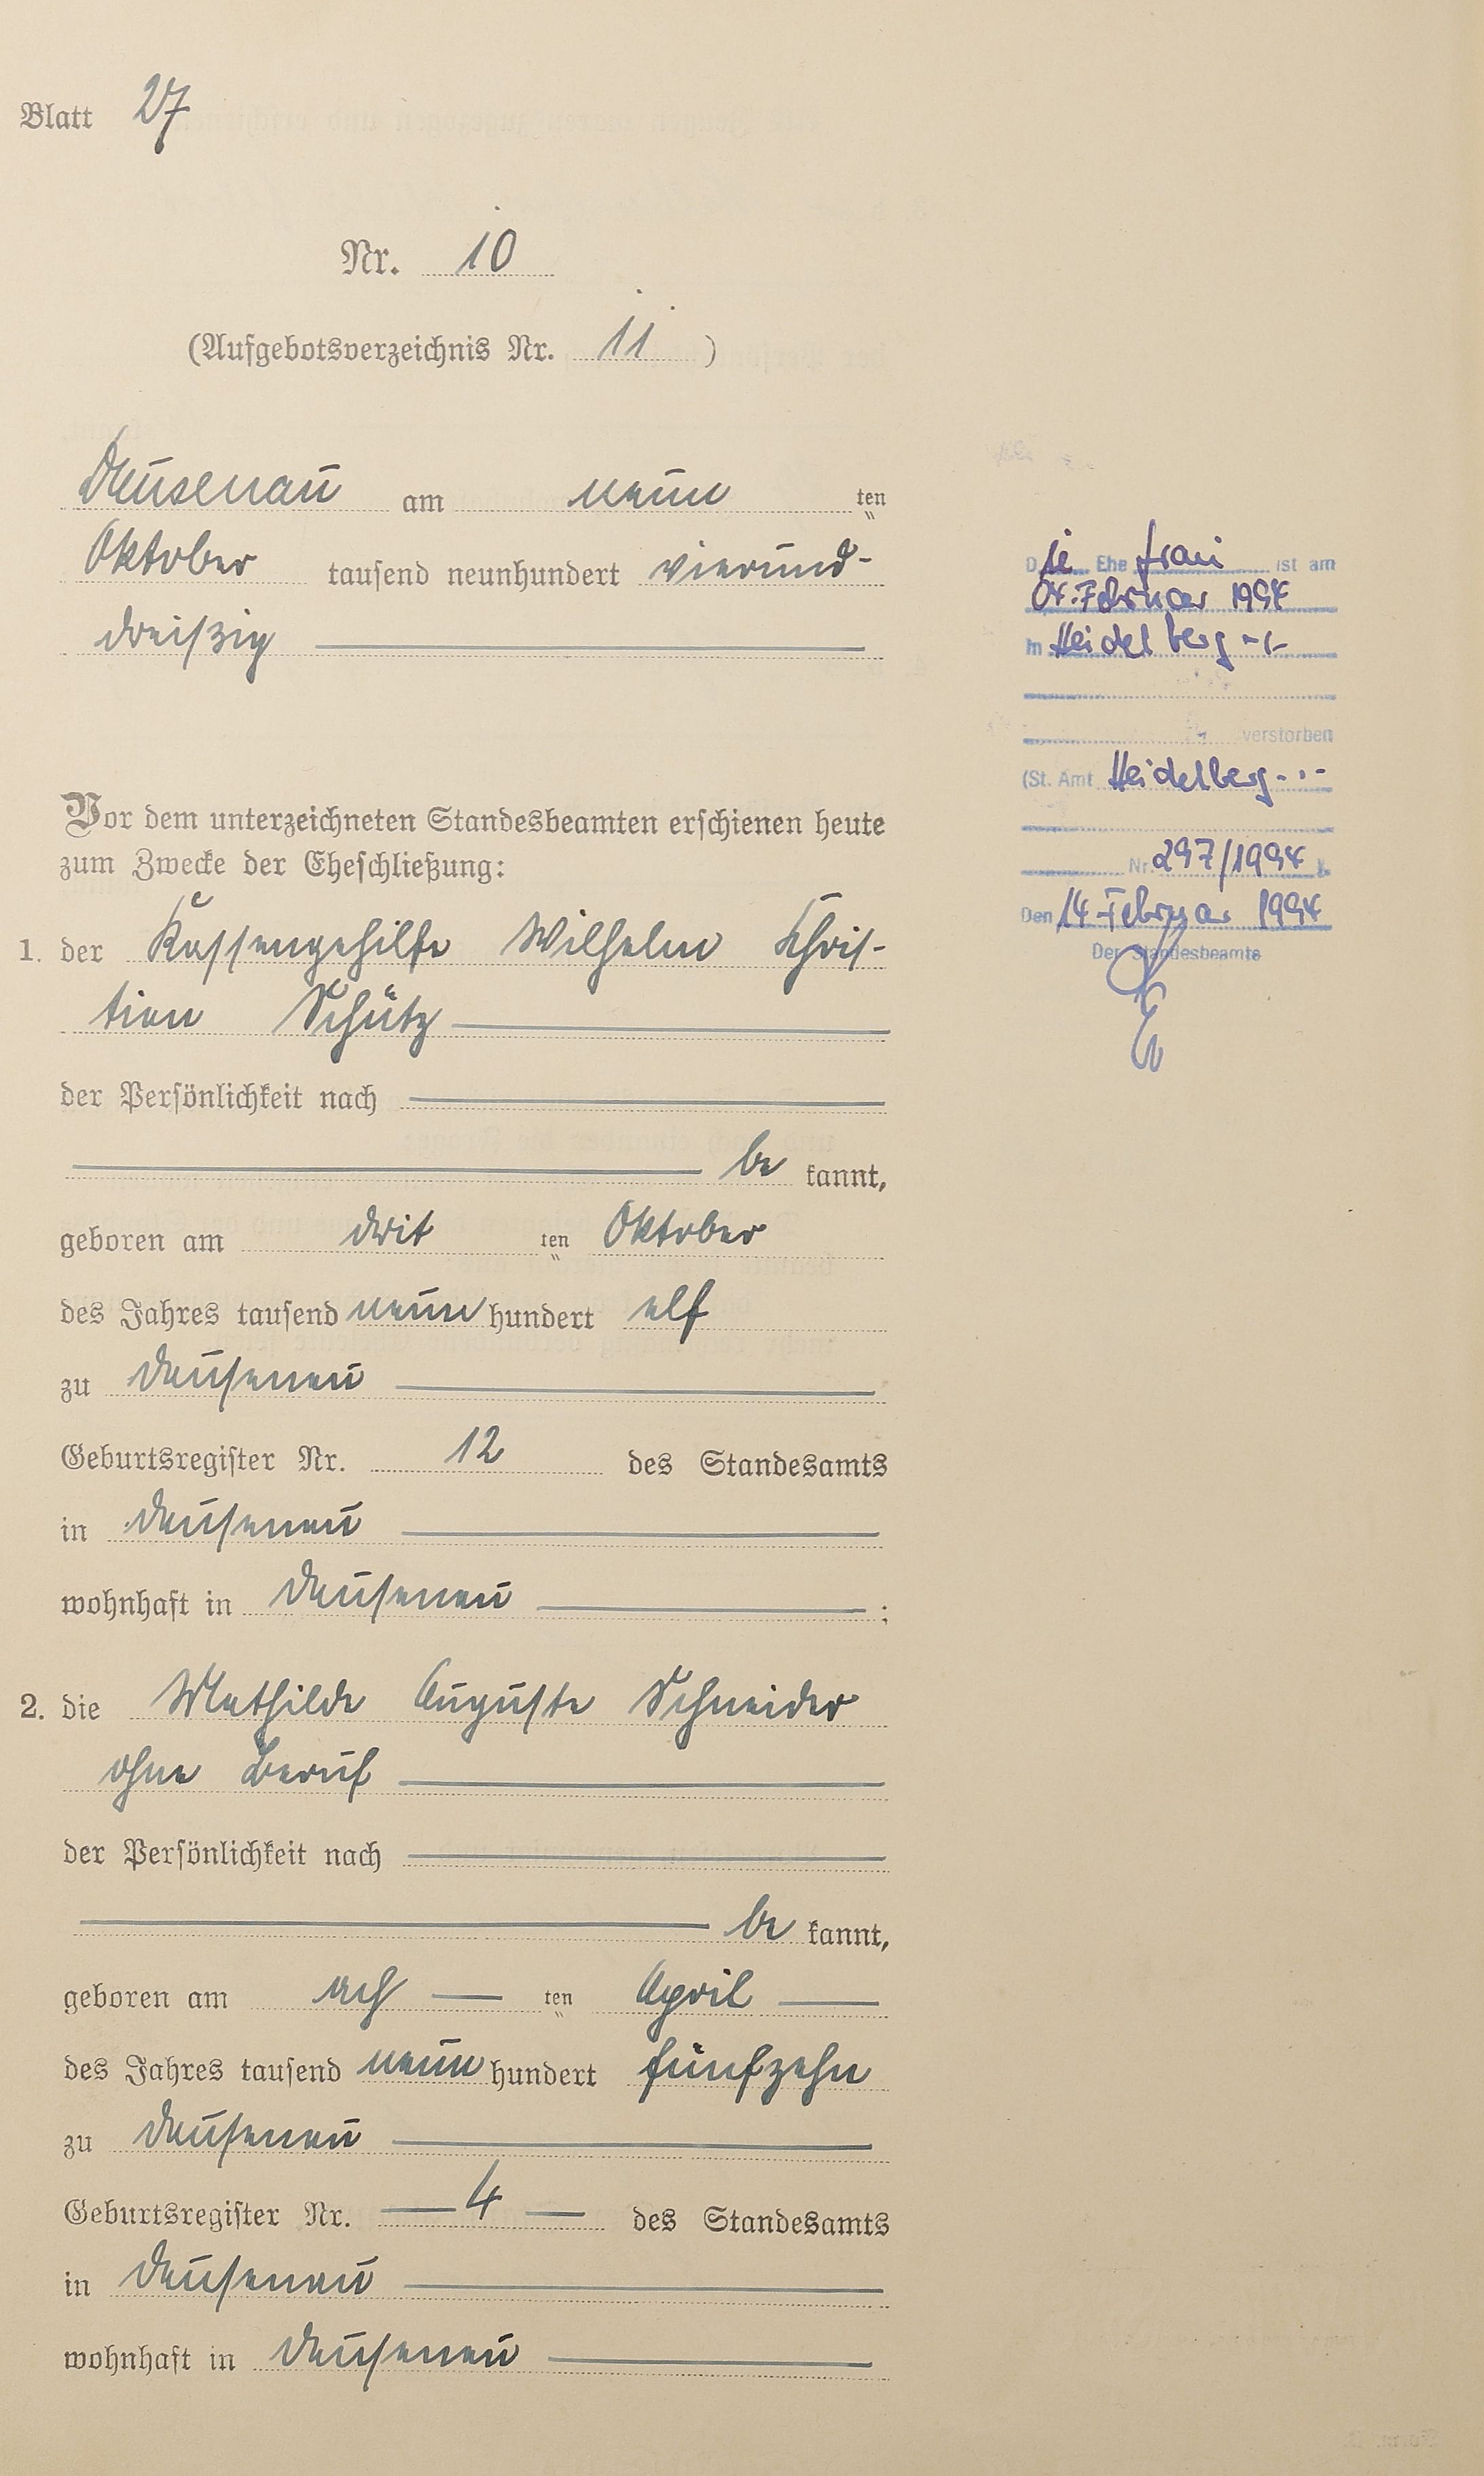 Blatt 27
Nr. 10
(Aufgebotsverzeichnis Nr. 11 )
Dausenau am neun ten
Oktober tausend neunhundert vierund-
dreißig
Vor dem unterzeichneten Standesbeamten erschienen heute
zum Zwecke der Eheschließung:
1. der Kassengehilfe Wilhelm Chris-
tian Schütz
der Persönlichkeit nach
be kannt,
geboren am drit ten Oktober
des Jahres tausend neun hundert elf
zu Dausenau
Geburtsregister Nr. 12 des Standesamts
in Dausenau
wohnhaft in Dausenau ;
2. die Mathilde Auguste Schneider
ohne Beruf
der Persönlichkeit nach
be kannt,
geboren am ach ten April
des Jahres tausend neun hundert fünfzehn
zu Dausenau
Geburtsregister Nr. 4 des Standesamts
in Dausenau
wohnhaft in Dausenau
Die Ehefrau ist am
04. Februar 1994
in Heidelberg -.-
verstorben
(St. Amt Heidelberg -.-
Nr. 297/1994 ).
Den 14. Februar 1994
Der Standesbeamte